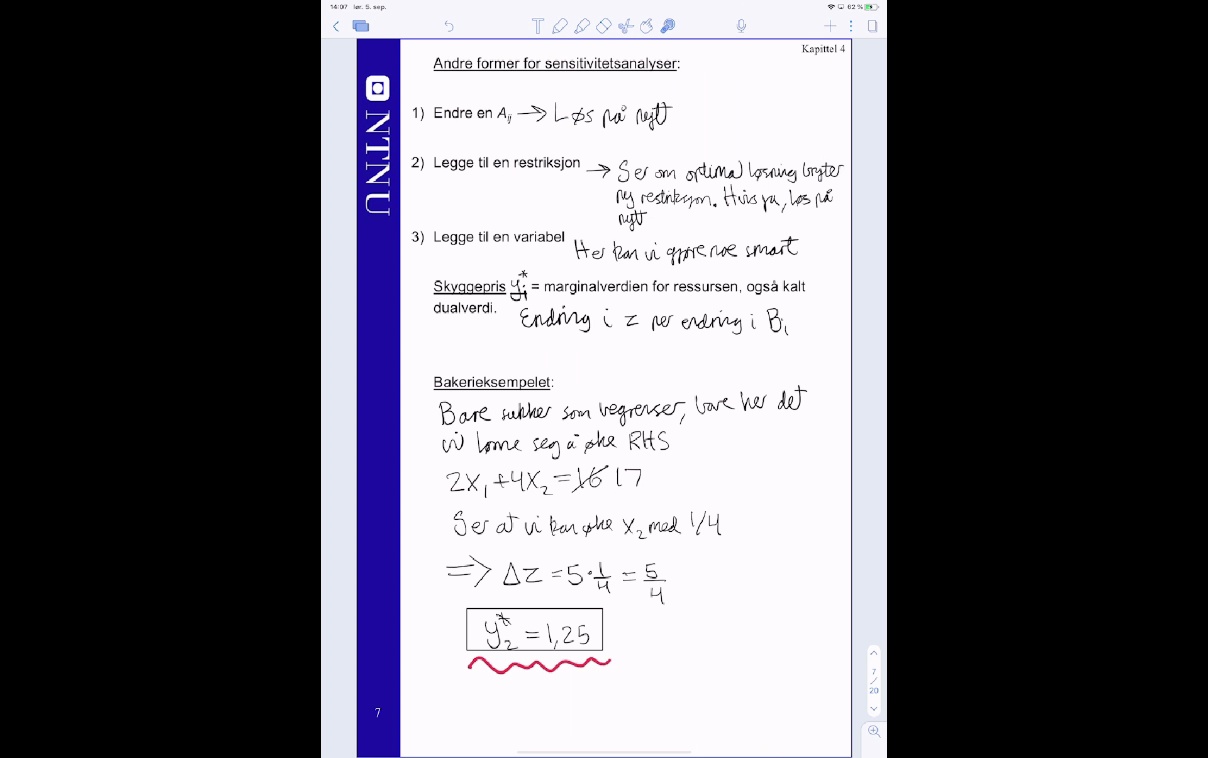 14:07 lør. 5. sep.
62 %
Kapittel 4
NTNU
Andre former for sensitivitetsanalyser:
1) Endre en Aij → Løs på nytt
2) Legge til en restriksjon → Ser om optimal løsning bryter
ny restriksjon. Hvis ja, løs på
nytt
3) Legge til en variabel Her kan vi gjøre noe smart
Skyggepris yi* = marginalverdien for ressursen, også kalt
dualverdi. Endring i z per endring i Bi
Bakerieksempelet:
Bare sukker som begrenser, bare her det
vil lønne seg å øke RHS
2x1 + 4x2 = 16 17
Ser at vi kan øke x2 med 1/4
=> Δz = 5·1/4 = 5/4
y2* = 1,25
7
7
/
20